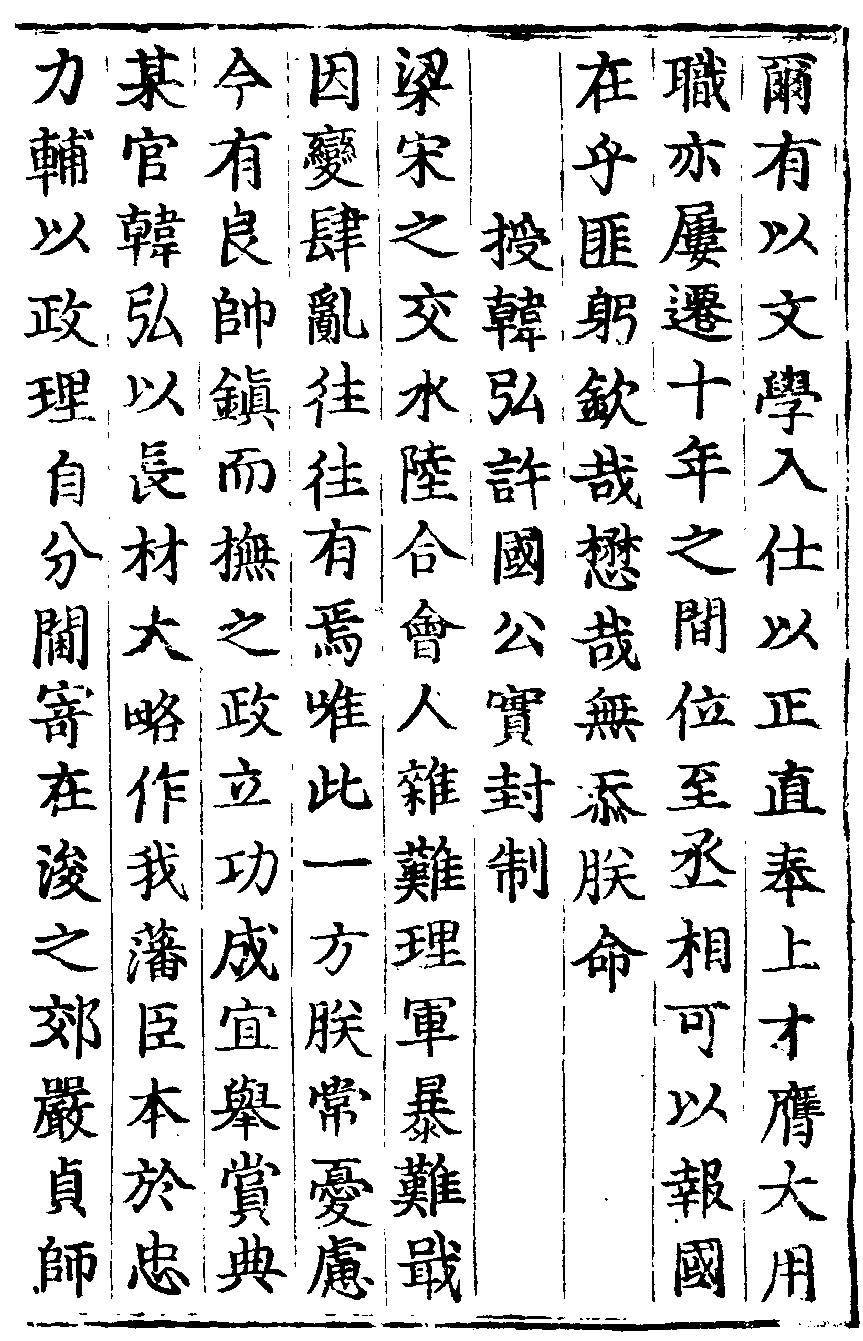 爾有以文學入仕以正直奉上才膺大用
職亦屢遷十年之間位至丞相可以報國
在乎匪躬欽哉懋哉無忝朕命
授韓弘許國公實封制
梁宋之交水陸合會人雜難理軍暴難戢
因變肆亂往往有焉唯此一方朕常憂慮
今有良帥鎮而撫之政立功成宜舉賞典
某官韓弘以長材大略作我藩臣本於忠
力輔以政理自分閫寄在浚之郊嚴貞師